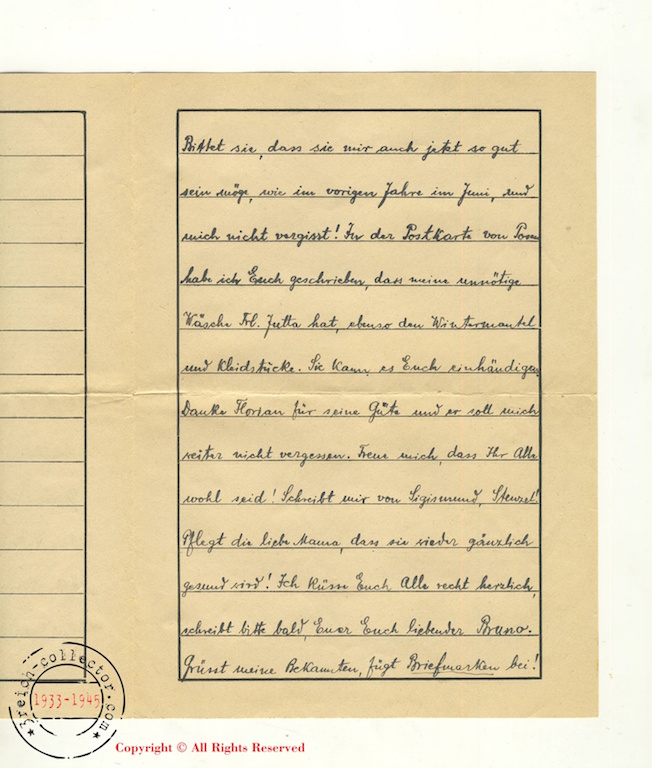 Bittet sie, dass sie mir auch jetzt so gut
sein möge, wie im vorigen Jahre im Juni, und
mich nicht vergisst! In der Postkarte von Posen
habe ich Euch geschrieben, dass meine unnötige
Wäsche Frl. Jutta hat, ebenso den Wintermantel
und Kleidstücke. Sie kann es Euch einhändigen.
Danke Florian für seine Güte und er soll mich
weiter nicht vergessen. Freue mich, dass Ihr Alle
wohl seid! Schreibt mir von Sigismund, Stenzel!
Pflegt die liebe Mama, dass sie wieder gänzlich
gesund wird! Ich küsse Euch Alle recht herzlich,
schreibt bitte bald, Euer Euch liebender Bruno.
Grüsst meine Bekannten, fügt Briefmarken bei!
3reich-collector.com
1933-1945
Copyright © All Rights Reserved